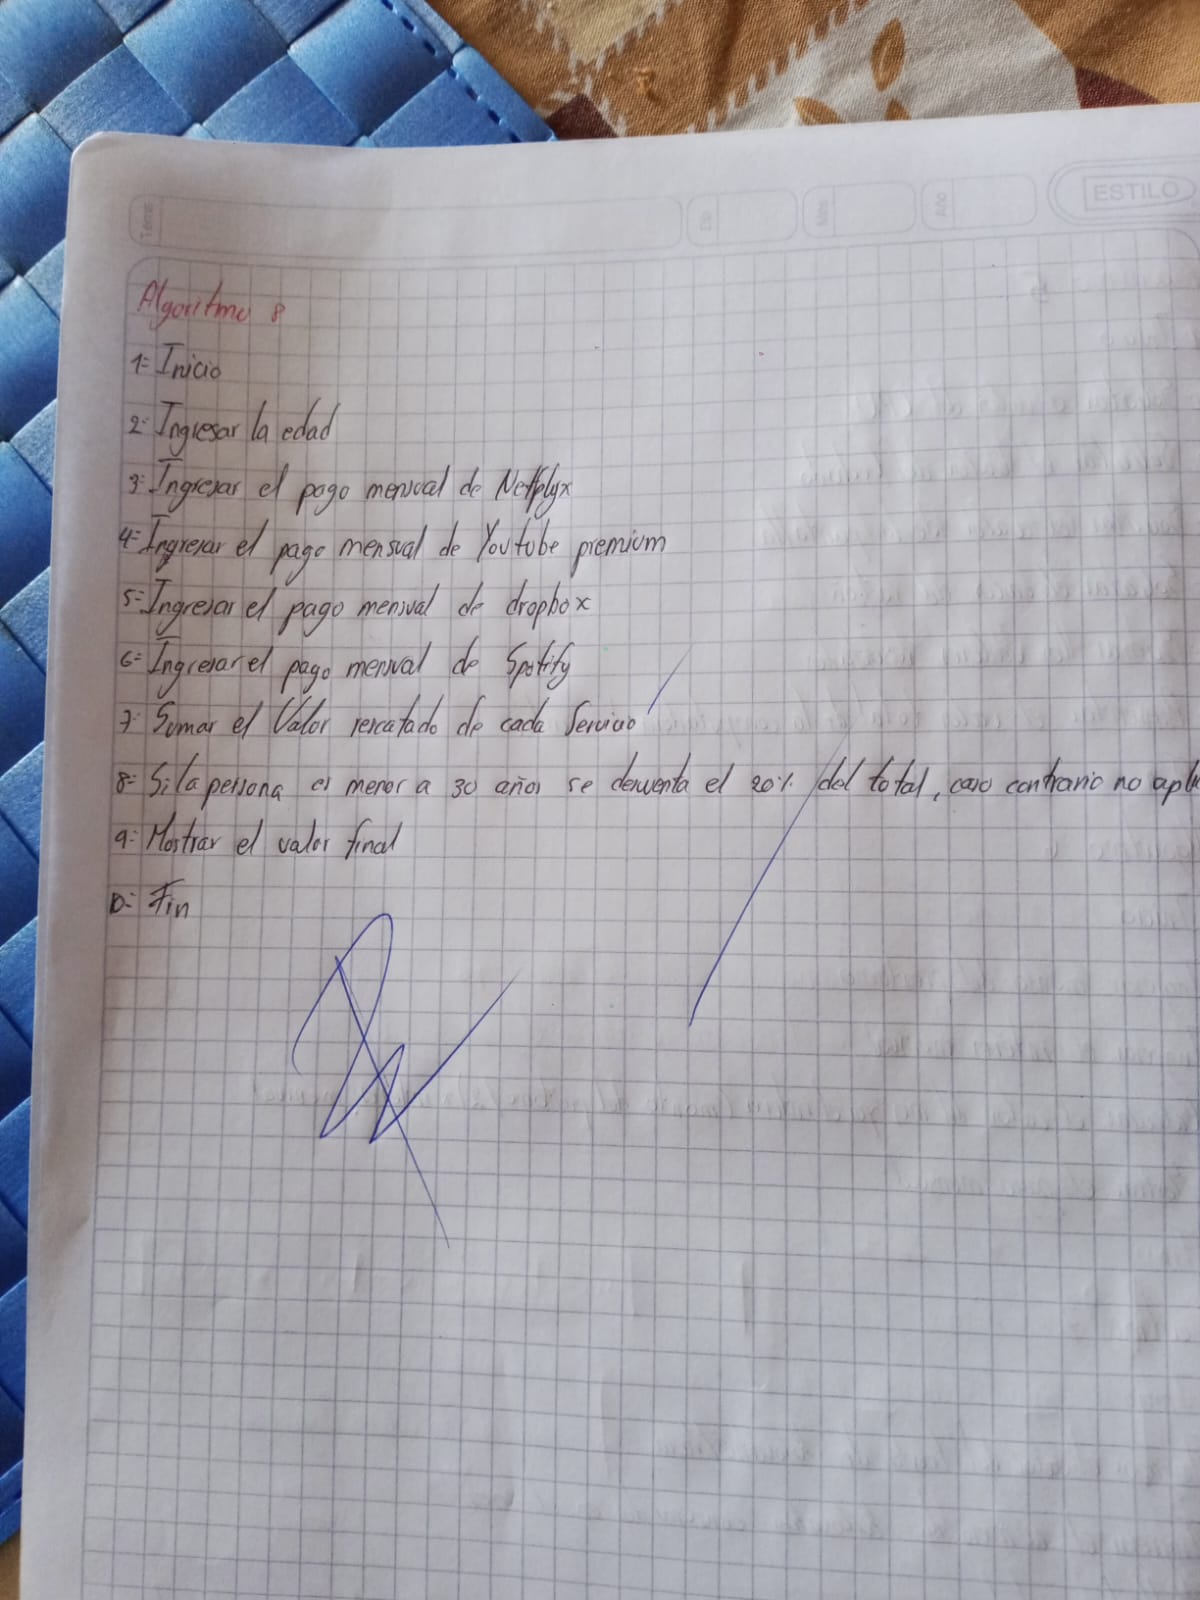 Tema:
Día
Mes
Año
ESTILO
Algoritmo 8
1= Inicio
2= Ingresar la edad
3= Ingresar el pago mensual de Netflyx
4= Ingresar el pago mensual de Youtube premium
5= Ingresar el pago mensual de dropbox
6= Ingresar el pago mensual de Spotify
7= Sumar el Valor rescatado de cada Servicio
8= Si la persona es menor a 30 años se descuenta el 20% del total, caso contrario no
9= Mostrar el valor final
10= Fin